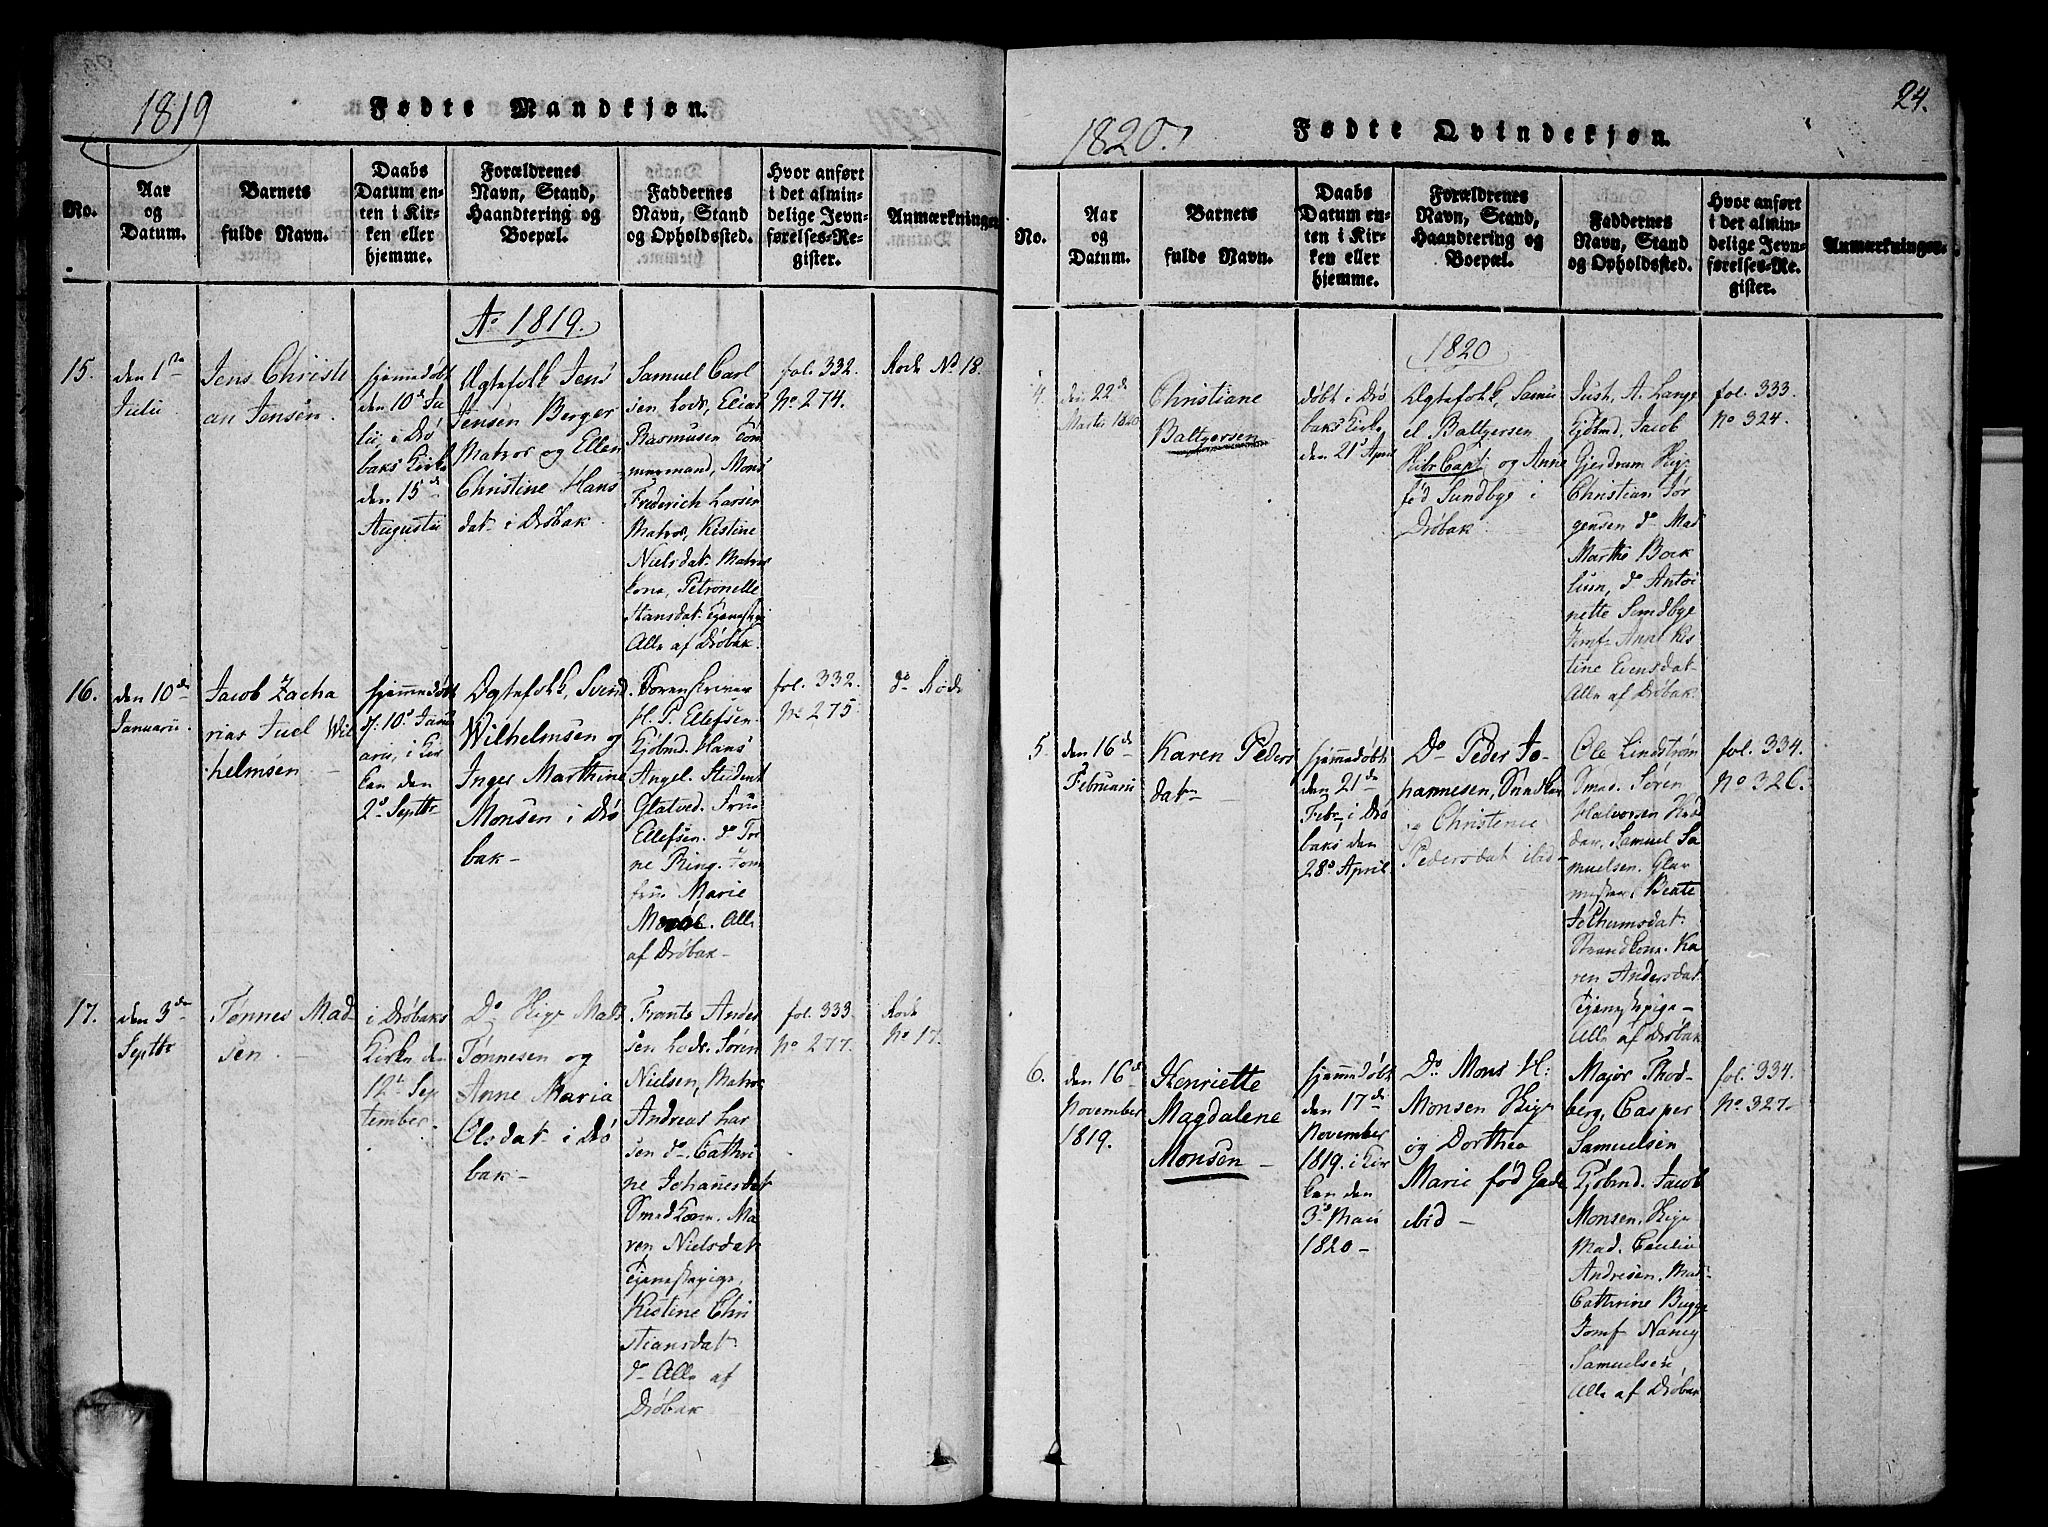 1819
Fødte Mandkjøn.
No.
Aar
og
Datum.
Barnets
fulde Navn.
Daabs
Datum en-
ten i Kir-
ken eller
hjemme.
Forældrenes
Navn, Stand,
Haandtering og
Boepæl.
Faddernes
Navn, Stand
og Opholdssted.
Hvor anført
i det almin-
delige Jevn-
førelses-Re-
gister.
Anmærkninger
Ao 1819.
15.
den 1ste
Julii
Jens Christi
an Jensen
hjemmedøbt
den 10de Ju
lii, i Drø
baks Kirke
den 15de
Augustii
Ægtefolk Jens
Jensen Berger
Matros og Ellen
Christine Hans
dat. i Drøbak
Samuel Carl
sen Lods, Elias
Rasmusen Tøm
mermand, Mons
Frederich Larsen
Matros, Kistine
Nielsdat. Matros
kone, Petronelle
Hansdat. Tjeneste
Alle af Drøbak.
fol. 332.
No 274.
Rode No 18
16.
den 10de
Januarii
Jacob Zacha
rias Juel Wil
helmsen
hjemmedøbt
d. 10de Janu
arii, i Kir
ken den
2de Septbr
Ægtefolk, Svend
Wilhelmsen og
Inger Marthine
Monsen i Drø
bak
Sorenskriver
H. P. Ellefsen.
Kjøbmd. Hans
Angel. Student
Glatved. Frue
Ellefsen. do
ne Ring. Jom
frue Marie
Alle
af Drøbak
fol. 332.
No 275
do Rode
17.
den 3de
Septbr
Tønnes Mad
sen
i Drøbaks
Kirke den
12te Sep
tember
Do Mads
Tønnesen og
Anne Maria
Olsdat i Drø
bak
Frants Ander
sen Lods. Søren
Nielsen, Matros
Andreas Lar
sen do Cathri
ne Johanesdat
Smedkone. Ma
ren Nielsdat
Tjenestepige,
Kistine Chri
stiansdat
do Alle af
Drøbak
fol. 333
No 277.
Rode
No 17.
24.
1820.
Fødte Qvindekjøn.
No.
Aar
og
Datum.
Barnets
fulde Navn.
Daabs
Datum en-
ten i Kir-
ken eller
hjemme.
Forældrenes
Navn, Stand,
Haandtering og
Boepæl.
Faddernes
Navn, Stand
og Opholdssted.
Hvor anført
i det almin-
delige Jevn-
førelses-Re-
gister.
Anmærkninger.
1820
4.
den 22de
Martii 1820
Christiane
Baltzersen
døbt i Drø
baks Kirke,
den 21de April
Ægtefolk, Samu
el Baltzersen
Skibs Capt. og Anne
fød Sundbye i
Drøbak
Just. A. Lange
Kjøbmd, Jacob
Gjerdrum
Christian Jør
gensen do Mad
Marthe Bork
lum, do Antoi
nette Sundbye
Jomf. Anne Kis
tine Evensdat
Alle af Drøbak
fol. 333.
No 324.
5.
den 16de
Februarii
Karen Peders
dat
hjemmedøbt
den 21de
Febr. i Drø
baks den
28de April
Do Peder Jo
hannesen, Snedker
og Christence
Pedersdat ibid
Ole Lindstrøm
Smed. Søren
Halvorsen
Samuel Sa
muelsen. Glar
mester, Beate
Jochumsdat.
Ka
ren Andersdat
Tjenestepige
Alle af Drøbak
fol. 334.
No 326.
6.
den 16de
November
1819.
Henriette
Magdalene
Monsen
hjemmedøbt
den 17de
November
1819. i Kir
ken den
3de Maii
1820
Do Mons H:
Monsen
og Dorthea
Marie fød Gade
ibid
Major Thod
berg, Casper
Samuelsen
Kjøbmd. Jacob
Monsen.
Mad. Cecilia
Andresen. Mad.
Cathrine Bugge
Jomf Nancy
Samuelsen,
Alle af Drøbak
fol. 334.
No 327.